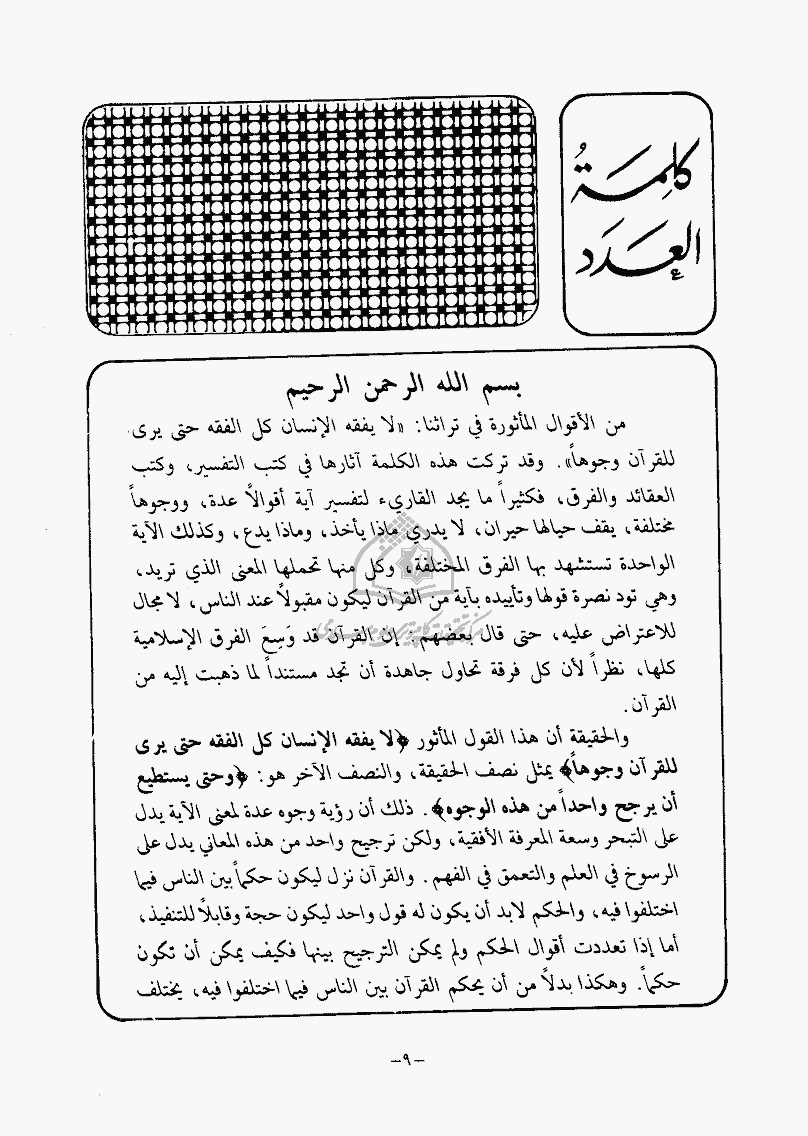 كلِمَةُ
العَدَد
بسم الله الرحمن الرحيم
من الأقوال المأثورة في تراثنا: «لا يفقه الإنسان كل الفقه حتى يرى
للقرآن وجوهاً». وقد تركت هذه الكلمة آثارها في كتب التفسير، وكتب
العقائد والفرق، فكثيراً ما يجد القاريء لتفسير آية أقوالاً عدة، ووجوهاً
مختلفة، يقف حيالها حيران، لا يدري ماذا يأخذ، وماذا يدع، وكذلك الآية
الواحدة تستشهد بها الفرق المختلفة، وكل منها تحملها المعنى الذي تريد،
وهي تود نصرة قولها وتأييده بآية من القرآن ليكون مقبولاً عند الناس، لا مجال
للاعتراض عليه، حتى قال بعضهم: إن القرآن قد وَسِعَ الفرق الإسلامية
كلها، نظراً لأن كل فرقة تحاول جاهدة أن تجد مستنداً لما ذهبت إليه من
القرآن.
والحقيقة أن هذا القول المأثور ﴿لا يفقه الإنسان كل الفقه حتى يرى
للقرآن وجوهاً﴾ يمثل نصف الحقيقة، والنصف الآخر هو: ﴿وحتى يستطيع
أن يرجح واحداً من هذه الوجوه﴾. ذلك أن رؤية وجوه عدة لمعنى الآية يدل
على التبحر وسعة المعرفة الأفقية، ولكن ترجيح واحد من هذه المعاني يدل على
الرسوخ في العلم والتعمق في الفهم. والقرآن نزل ليكون حكماً بين الناس فيما
اختلفوا فيه، والحكم لابد أن يكون له قول واحد ليكون حجة وقابلاً للتنفيذ،
أما إذا تعددت أقوال الحكم ولم يمكن الترجيح بينها فكيف يمكن أن تكون
حكماً. وهكذا بدلاً من أن يحكم القرآن بين الناس فيما اختلفوا فيه، يختلف
–٩–